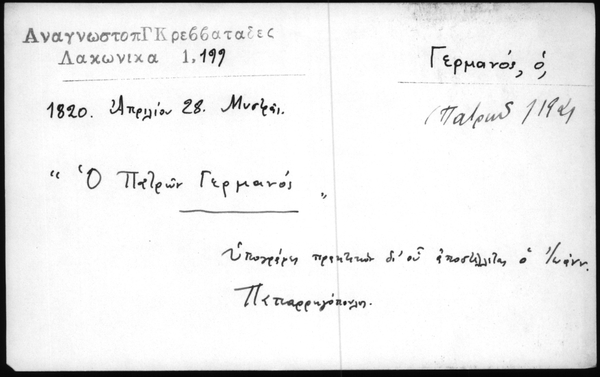 ΑναγνωστοπΓΚρεββαταδες
Λακωνικα 1,199
Γερμανός, ὁ,
1820. Ἀπριλίου 28. Μυστρᾶς.
(Πατρῶν
“ Ὁ Πατρῶν Γερμανός „
Ὑπογράφει πρακτικὸν δι' οὗ ἀποστέλλεται ὁ Ἰωάνν.
Παπαρρηγόπουλος.